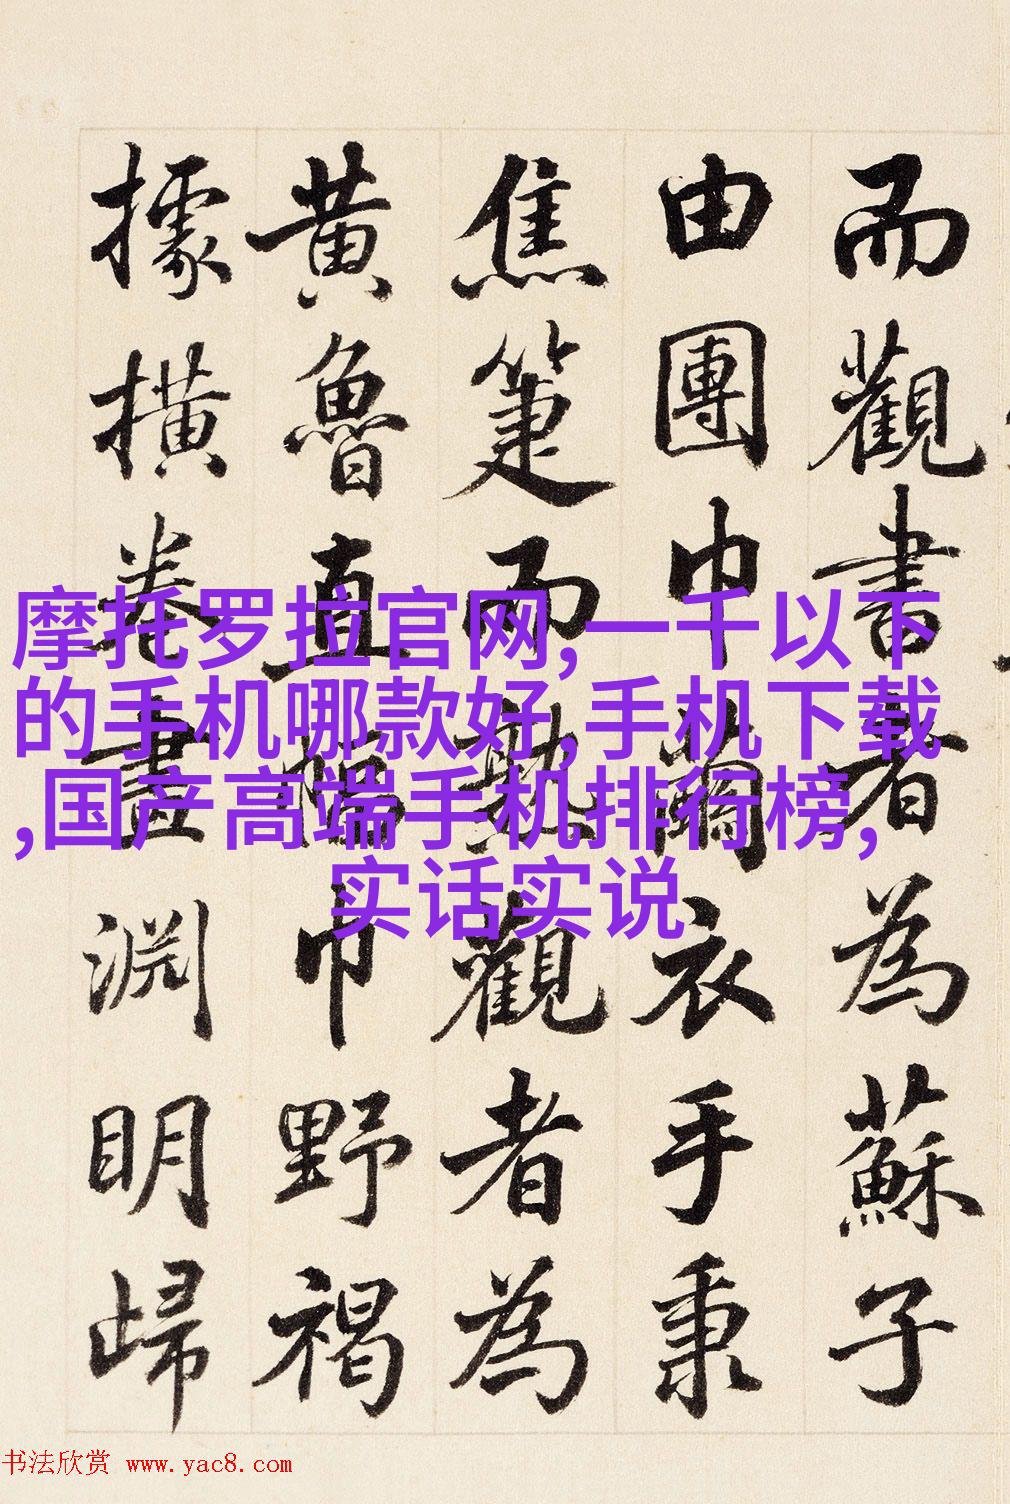 而觀書者為蘇子
由團巾繭衣手秉
焦箑而熟觀者為
黃魯直幅巾野褐
據橫卷畫淵明歸
摩托罗拉官网,一千以下
的手机哪款好,手机下载
,国产高端手机排行榜,
实话实说
书法欣赏 www.yac8.com